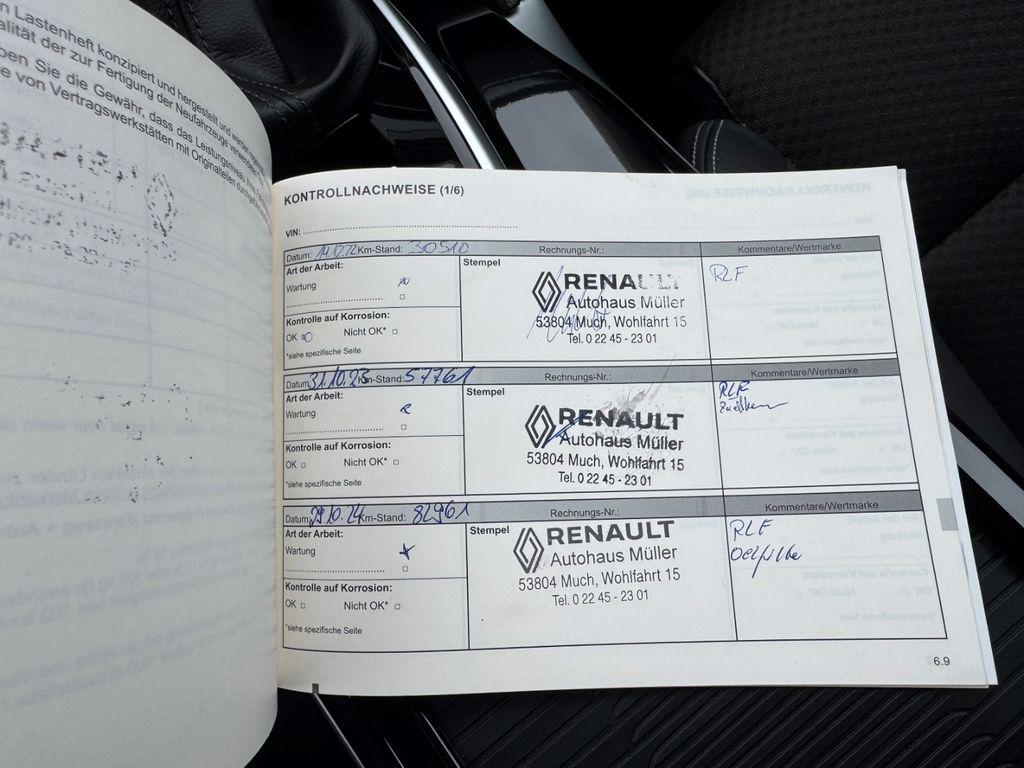 n Lastenheft konzipiert und hergestellt und werden
alität der zur Fertigung der Neufahrzeuge verwendeten
ben Sie die Gewähr, dass das Leistungsniveau Ihres
e von Vertragswerkstätten mit Originalteilen durchgeführt
KONTROLLNACHWEISE (1/6)
VIN:
Datum: 14.12.22 Km-Stand: 30510 Rechnungs-Nr.: Kommentare/Wertmarke
Art der Arbeit:
Stempel
RLF
Wartung
RENAULT
Autohaus Müller
Kontrolle auf Korrosion:
53804 Much, Wohlfahrt 15
OK Nicht OK*
Tel. 0 22 45 - 23 01
*siehe spezifische Seite
Datum: 31.10.23 Km-Stand: 57761 Rechnungs-Nr.: Kommentare/Wertmarke
Art der Arbeit:
Stempel
RLF
Wartung
RENAULT
Autohaus Müller
Kontrolle auf Korrosion:
53804 Much, Wohlfahrt 15
OK Nicht OK*
Tel. 0 22 45 - 23 01
*siehe spezifische Seite
Datum: 29.10.24 Km-Stand: 82961 Rechnungs-Nr.: Kommentare/Wertmarke
Art der Arbeit:
Stempel
RLF
Wartung
RENAULT
Ölfilter
Autohaus Müller
Kontrolle auf Korrosion:
53804 Much, Wohlfahrt 15
OK Nicht OK*
Tel. 0 22 45 - 23 01
*siehe spezifische Seite
6.9